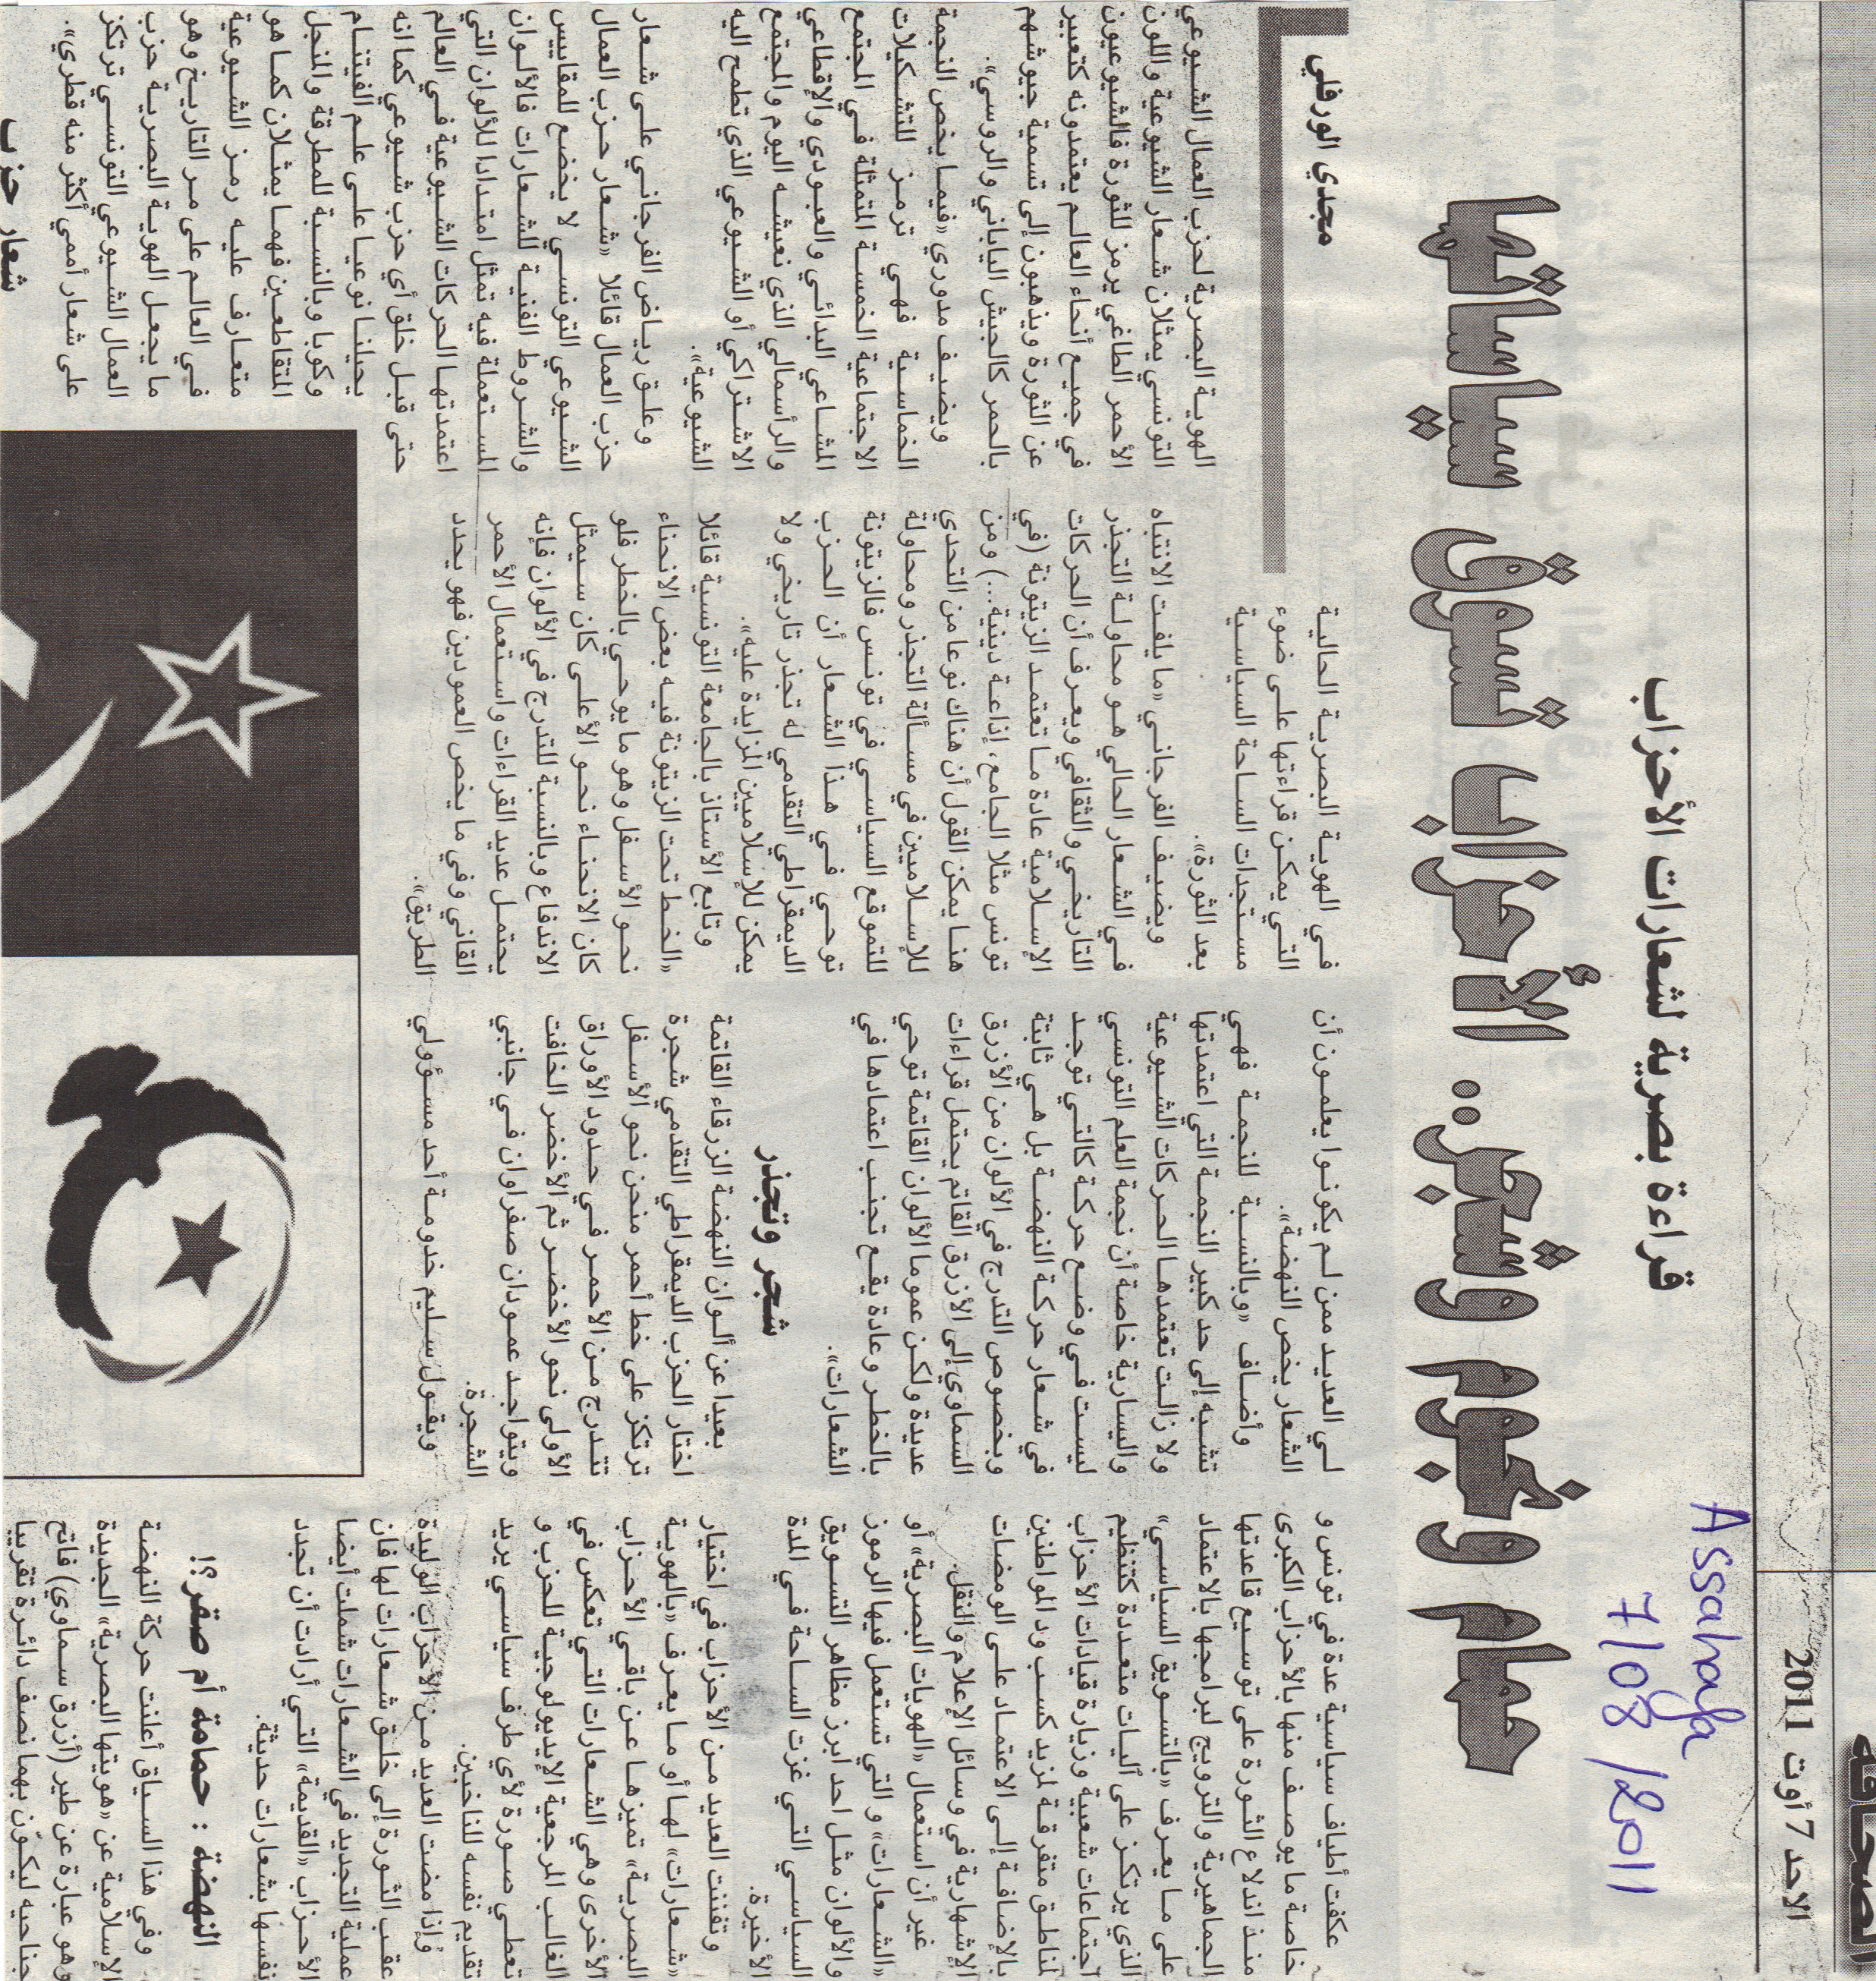 الصحافة
الاحد 7 أوت 2011
Assahafa
7/08/2011
قراءة بصرية لشعارات الأحزاب
حمام ونجوم وشجر.. الأحزاب تسوق سياساتها
مجدي الورفلي
عكفت أطياف سياسية عدة في تونس و
خاصة ما يوصف منها بالأحزاب الكبرى
منذ اندلاع الثورة على توسيع قاعدتها
الجماهيرية والترويج لبرامجها بالاعتماد
على ما يعرف «بالتسويق السياسي»
الذي يرتكز على آليات متعددة كتنظيم
اجتماعات شعبية وزيارة قيادات الأحزاب
لمناطق متفرقة لمزيد كسب ود المواطنين
بالإضافة إلى الاعتماد على الومضات
الإشهارية في وسائل الإعلام والنقل.
غير أن استعمال «الهويات البصرية» أو
«الشعارات» و التي تستعمل فيها الرموز
والألوان مثل احد ابرز مظاهر التسويق
السياسي التي غزت الساحة في المدة
الأخيرة.
وتفننت العديد من الأحزاب في اختيار
«شعارات» لها أو ما يعرف «بالهوية
البصرية» تميزها عن باقي الأحزاب
الأخرى وهي الشعارات التي تعكس في
الغالب المرجعية الإيديولوجية للحزب و
تعطي صورة لأي طرف سياسي يريد
تقديم نفسه للناخبين.
وإذا مضت العديد من الأحزاب الوليدة
عقب الثورة إلى خلق شعارات لها فان
عملية التجديد في الشعارات شملت أيضا
الأحزاب «القديمة» التي أرادت أن تجدد
نفسها بشعارات حديثة.
النهضة : حمامة أم صقر؟!
وفي هذا السياق أعلنت حركة النهضة
الإسلامية عن «هويتها البصرية» الجديدة
وهو عبارة عن طير (أزرق سماوي) فاتح
جناحيه ليكوّن بهما نصف دائرة تقريبا
لي العديد ممن لم يكونوا يعلمون أن
الشعار يخص النهضة».
وأضاف «وبالنسبة للنجمة فهي
تشبه إلى حد كبير النجمة التي اعتمدتها
ولا زالت تعتمدها الحركات الشيوعية
واليسارية خاصة أن نجمة العلم التونسي
ليست في وضع حركة كالتي توجد
في شعار حركة النهضة بل هي ثابتة
وبخصوص التدرج في الألوان من الأزرق
السماوي إلى الأزرق القاتم يحتمل قراءات
عديدة ولكن عموما الألوان القاتمة توحي
بالخطر وعادة يقع تجنب اعتمادها في
الشعارات».
شجر وتجذر
بعيدا عن ألوان النهضة الزرقاء القاتمة
اختار الحزب الديمقراطي التقدمي شجرة
ترتكز على خط أحمر منحن نحو الأسفل
تتدرج من الأحمر في حدود الأوراق
الأولى نحو الأخضر ثم الأخضر الخافت
ويتواجد عمودان صفراوان في جانبي
الشجرة.
ويقول سليم خدومة أحد مسؤولي
في الهوية البصرية الحالية
التي يمكن قراءتها على ضوء
مستجدات الساحة السياسية
بعد الثورة».
ويضيف الفرجاني «ما يلفت الانتباه
في الشعار الحالي هو محاولة التجذر
التاريخي والثقافي ويعرف أن الحركات
الإسلامية عادة ما تعتمد الزيتونة (في
تونس مثلا الجامع، إذاعة دينية...) ومن
هنا يمكن القول أن هناك نوعا من التحدي
للإسلاميين في مسألة التجذر ومحاولة
للتموقع السياسي في تونس فالزيتونة
توحي في هذا الشعار أن الحزب
الديمقراطي التقدمي له تجذر تاريخي ولا
يمكن للإسلاميين المزايدة عليه».
وتابع الأستاذ بالجامعة التونسية قائلا
«الخط تحت الزيتونة فيه بعض الانحناء
نحو الأسفل وهو ما يوحي بالخطر فلو
كان الانحناء نحو الأعلى كان سيمثل
الاندفاع وبالنسبة للتدرج في الألوان فإنه
يحتمل عديد القراءات واستعمال الأحمر
القاني وفي ما يخص العمودين فهو يحدد
الطريق».
الهوية البصرية لحزب العمال الشيوعي
التونسي يمثلان شعار الشيوعية واللون
الأحمر الطاغي يرمز للثورة فالشيوعيون
في جميع أنحاء العالم يعتمدونه كتعبير
عن الثورة ويذهبون إلى تسمية جيوشهم
بالحمر كالجيش الياباني والروسي».
ويضيف مدوري «فيما يخص النجمة
الخماسية فهي ترمز للتشكيلات
الاجتماعية الخمسة المتمثلة في المجتمع
المشاعي البدائي والعبودي والإقطاعي
والرأسمالي الذي نعيشه اليوم والمجتمع
الاشتراكي أو الشيوعي الذي تطمح اليه
الشيوعية».
وعلق رياض الفرجاني على شعار
حزب العمال قائلا «شعار حزب العمال
الشيوعي التونسي لا يخضع للمقاييس
والشروط الفنية للشعارات فالألوان
المستعملة فيه تمثل امتدادا للألوان التي
اعتمدتها الحركات الشيوعية في العالم
حتى قبل خلق أي حزب شيوعي كما انه
يحيلنا نوعيا على علم الفيتنام
وكوبا وبالنسبة للمطرقة والمنجل
المتقاطعين فهما يمثلان كما هو
متعارف عليه رمز الشيوعية
في العالم على مر التاريخ وهو
ما يجعل الهوية البصرية حزب
العمال الشيوعي التونسي ترتكز
على شعار أممي أكثر منه قطري».
شعار حزب